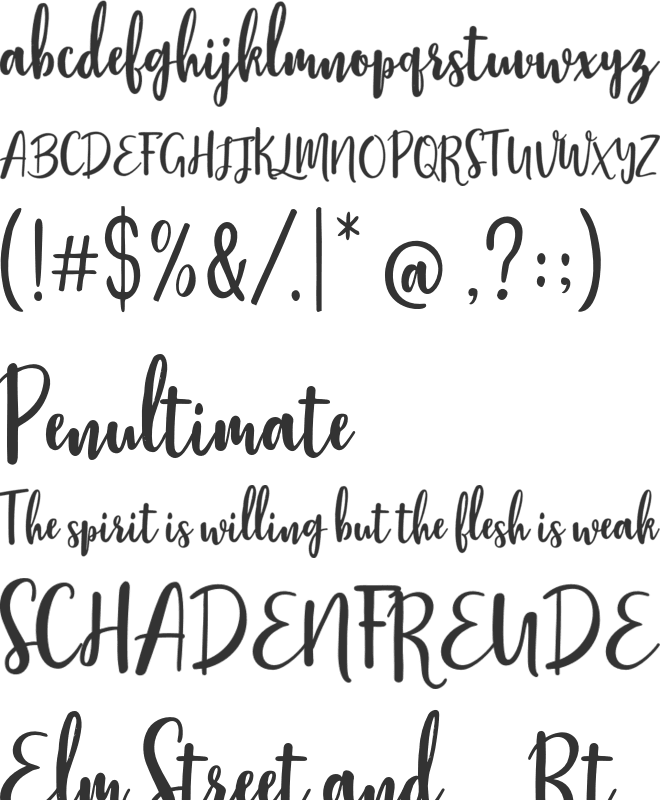 abcdefghijklmnopqrstuvwxyz
ABCDEFGHIJKLMNOPQRSTUVWXYZ
(!#$%&/.|* @ ,?:;)
Penultimate
The spirit is willing but the flesh is weak
SCHADENFREUDE
Elm Street and Rt